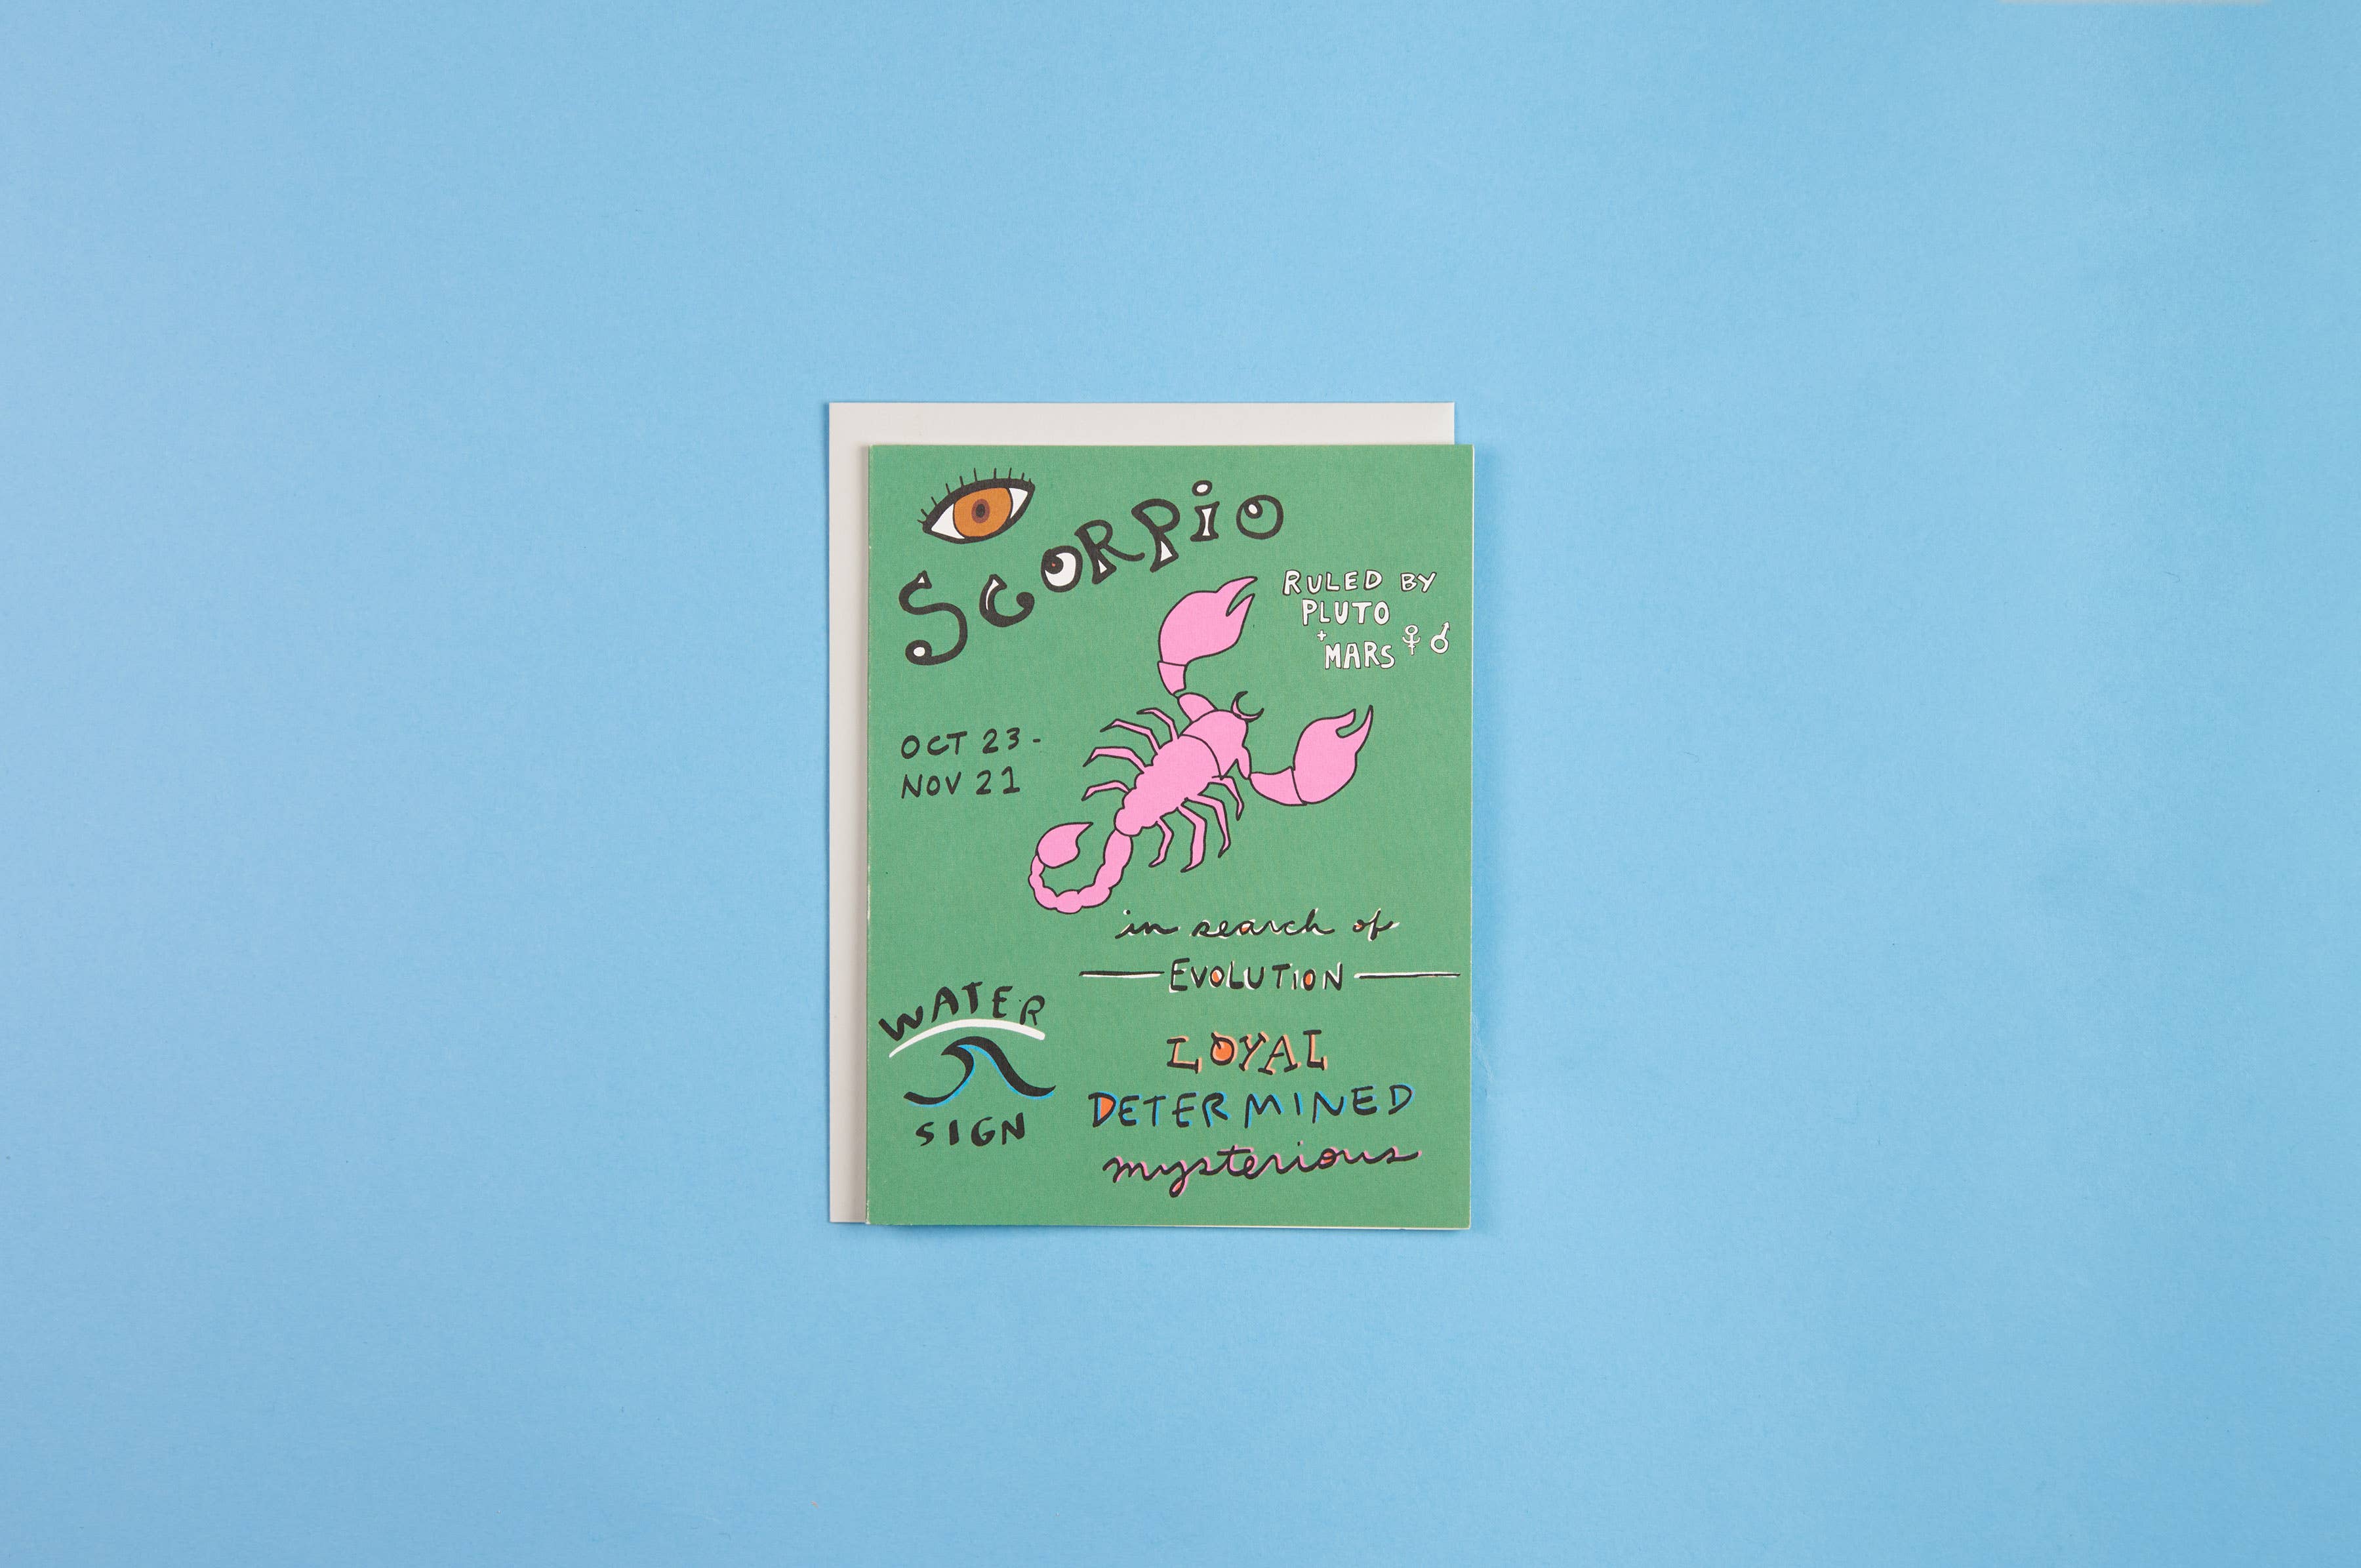 Scorpio
RULED BY
PLUTO
+
MARS ♂
OCT 23-
NOV 21
in search of
EVOLUTION
WATER
SIGN
LOYAL
DETERMINED
mysterious